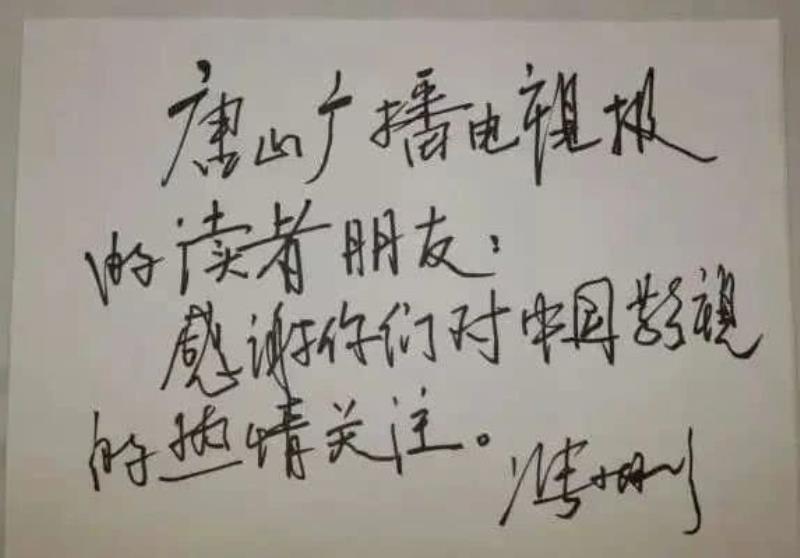 唐山广播电视报
的读者朋友：
感谢你们对中国影视
的热情关注。